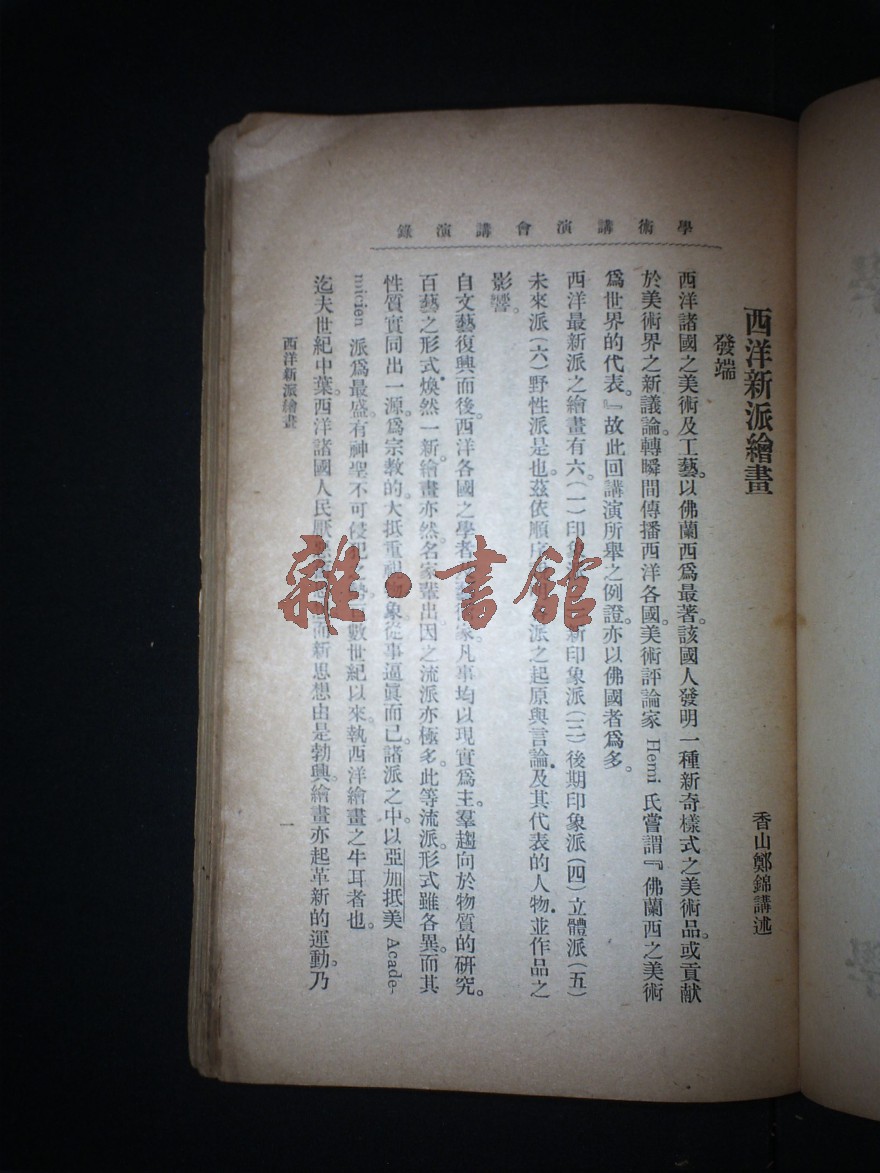 學術講演會講演錄
西洋新派繪畫
香山鄭錦講述
發端
西洋諸國之美術及工藝。以佛蘭西爲最著。該國人發明一種新奇樣式之美術品。或貢獻
於美術界之新議論。轉瞬間傳播西洋各國。美術評論家 Hemi. 氏嘗謂『佛蘭西之美術
爲世界的代表。』故此回講演所舉之例證。亦以佛國者爲多。
西洋最新派之繪畫有六。(一)印象 新印象派(三)後期印象派(四)立體派(五)
未來派(六)野性派是也。茲依順序 派之起原與言論。及其代表的人物。並作品之
影響。
自文藝復興而後。西洋各國之學者 家。凡事均以現實爲主。羣趨向於物質的研究。
百藝之形式。煥然一新。繪畫亦然。名家輩出。因之流派亦極多。此等流派。形式雖各異。而其
性質實同出一源。爲宗教的。大抵重視物象。從事逼眞而已。諸派之中。以亞加抵美 Acade-
micien 派爲最盛。有神聖不可侵犯 數世紀以來。執西洋繪畫之牛耳者也。
迄夫世紀中葉。西洋諸國人民厭 而新思想由是勃興。繪畫亦起革新的運動。乃
西洋新派繪畫
一
雜·書館